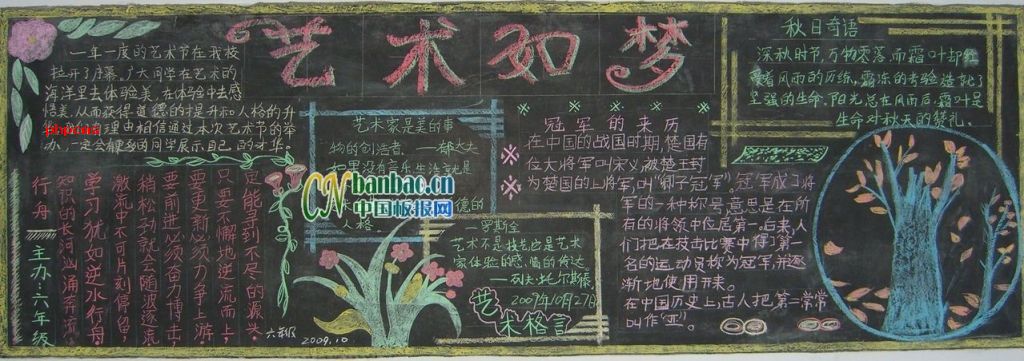 艺术如梦
一年一度的艺术节在我校
拉开了序幕。广大同学在艺术的
海洋里去体验美,在体验中去感
悟美,从而获得道德的提升和人格的升
理由相信通过本次艺术节的举
办,一定会
同学展示自己的才华。
艺术家是美的事
物的创造者。
如果没有音乐生活就是
德的
人格
——罗斯金
艺术不是技艺,它是艺术
家体验的感情的传达
——列夫·托尔斯泰
2009年10月27日
艺术格言
冠军的来历
在中国的战国时期,楚国有
位大将军叫宋义被楚王封
为楚国的上将军,叫“卿子冠军”。冠军成了将
军的一种称号,意思是在所
有的将领中位居第一。后来,人
们把在技击比赛中得了第一
名的运动员称为冠军,并逐
渐地使用开来。
在中国历史上,古人把第二常常
叫作“亚”。
秋日奇语
深秋时节,万物零落,而霜叶却红
着风雨的历练,霜冻的考验造就了
坚强的生命。阳光总在风雨后,霜叶是
生命对秋天的赞礼。
是能寻到不尽的源头。
只要不懈地逆流而上,
要更新必须力争上游
要前进必须奋力搏击;
稍松劲就会随波逐流
激流中不可片刻停留,
学习犹如逆水行舟
知识的长河汹涌奔流
行舟
主办:六年级
六年级
2009.10
CN banbao.cn
中国板报网